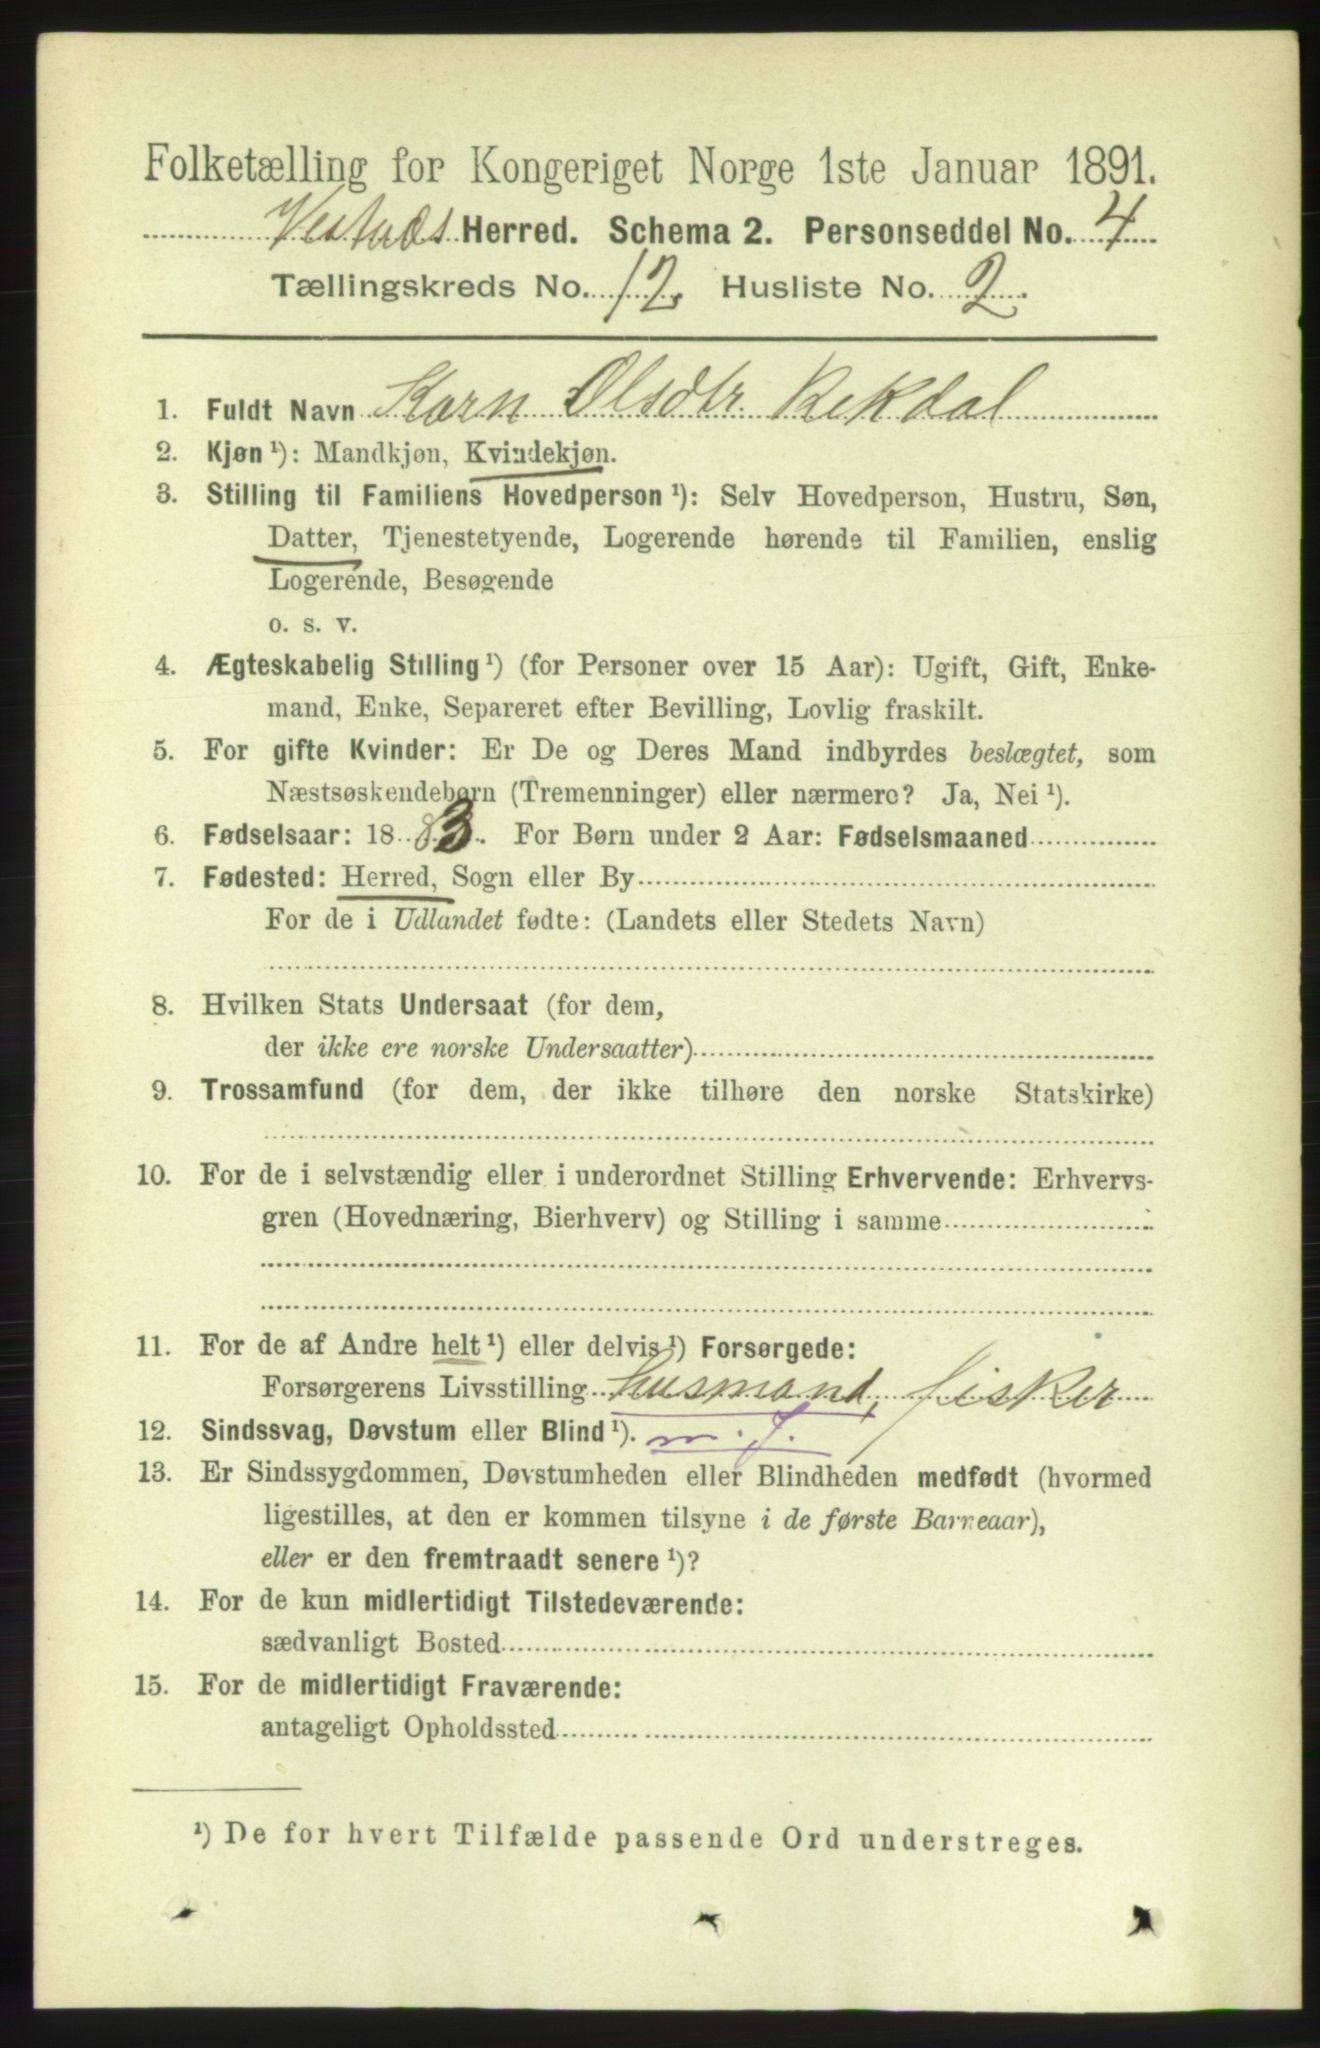 Folketælling for Kongeriget Norge 1ste Januar 1891.
Vestnæs Herred. Schema 2. Personseddel No. 4
Tællingskreds No. 12. Husliste No. 2.
1. Fuldt Navn Karn Olsdtr Rekdal
2. Kjøn ¹): Mandkjøn, Kvindekjøn.
3. Stilling til Familiens Hovedperson ¹): Selv Hovedperson, Hustru, Søn,
Datter, Tjenestetyende, Logerende hørende til Familien, enslig
Logerende, Besøgende
o. s. v.
4. Ægteskabelig Stilling ¹) (for Personer over 15 Aar): Ugift, Gift, Enke-
mand, Enke, Separeret efter Bevilling, Lovlig fraskilt.
5. For gifte Kvinder: Er De og Deres Mand indbyrdes beslægtet, som
Næstsøskendebørn (Tremenninger) eller nærmere? Ja, Nei ¹).
6. Fødselsaar: 1883. For Børn under 2 Aar: Fødselsmaaned
7. Fødested: Herred, Sogn eller By
For de i Udlandet fødte: (Landets eller Stedets Navn)
8. Hvilken Stats Undersaat (for dem,
der ikke ere norske Undersaatter)
9. Trossamfund (for dem, der ikke tilhøre den norske Statskirke)
10. For de i selvstændig eller i underordnet Stilling Erhvervende: Erhvervs-
gren (Hovednæring, Bierhverv) og Stilling i samme
11. For de af Andre helt ¹) eller delvis ¹) Forsørgede:
Forsørgerens Livsstilling Husmand, fisker
12. Sindssvag, Døvstum eller Blind ¹). m. J.
13. Er Sindssygdommen, Døvstumheden eller Blindheden medfødt (hvormed
ligestilles, at den er kommen tilsyne i de første Barneaar),
eller er den fremtraadt senere ¹)?
14. For de kun midlertidigt Tilstedeværende:
sædvanligt Bosted
15. For de midlertidigt Fraværende:
antageligt Opholdssted
¹) De for hvert Tilfælde passende Ord understreges.